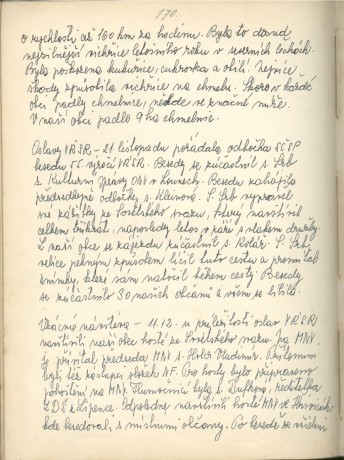 170
o rychlosti až 160 km za hodinu. Byla to dosud
nejsilnější vichřice letošního roku v severních Čechách.
Byla poškozena kukuřice, cukrovka a obilí. Nejvíce
škody způsobila vichřice na chmelu. Skoro v každé
obci padly chmelnice, někde ve značné míře.
V naší obci padlo 9 ha chmelnic.
Oslavy VŘSR - 21. listopadu pořádala odbočka SČSP
besedu 55. výročí VŘSR. Besedy se zúčastnil s. Srb
z Kulturní správy ONV v Lounech. Besedu zahájila
předsedkyně odbočky s. Kleinová. S. Srb vyprávěl
své zážitky ze Sovětského svazu, který navštívil
celkem , naposledy letos v září s vlakem družby.
Z naší obce se zájezdu zúčastnil s. Kolář. S. Srb
velice pěkným způsobem líčil tuto cestu a promítal
snímky, které sám natočil během cesty. Besedy
se zúčastnilo 30 našich občanů a všem se líbila.
Vzácná návštěva - 11.12. u příležitosti oslav VŘSR
navštívili naši obec hosté ze Sovětského svazu. Na MNV
je přivítal předseda MNV s. Vladimír. Přítomni
byli též zástupci složek NF. Pro hosty bylo připraveno
pohoštění na MNV. Tlumočnicí byla s. , ředitelka
ZDŠ z Lipence. Odpoledne navštívili hosté MNV ve
kde besedovali s místními občany. Po besedě se všichni